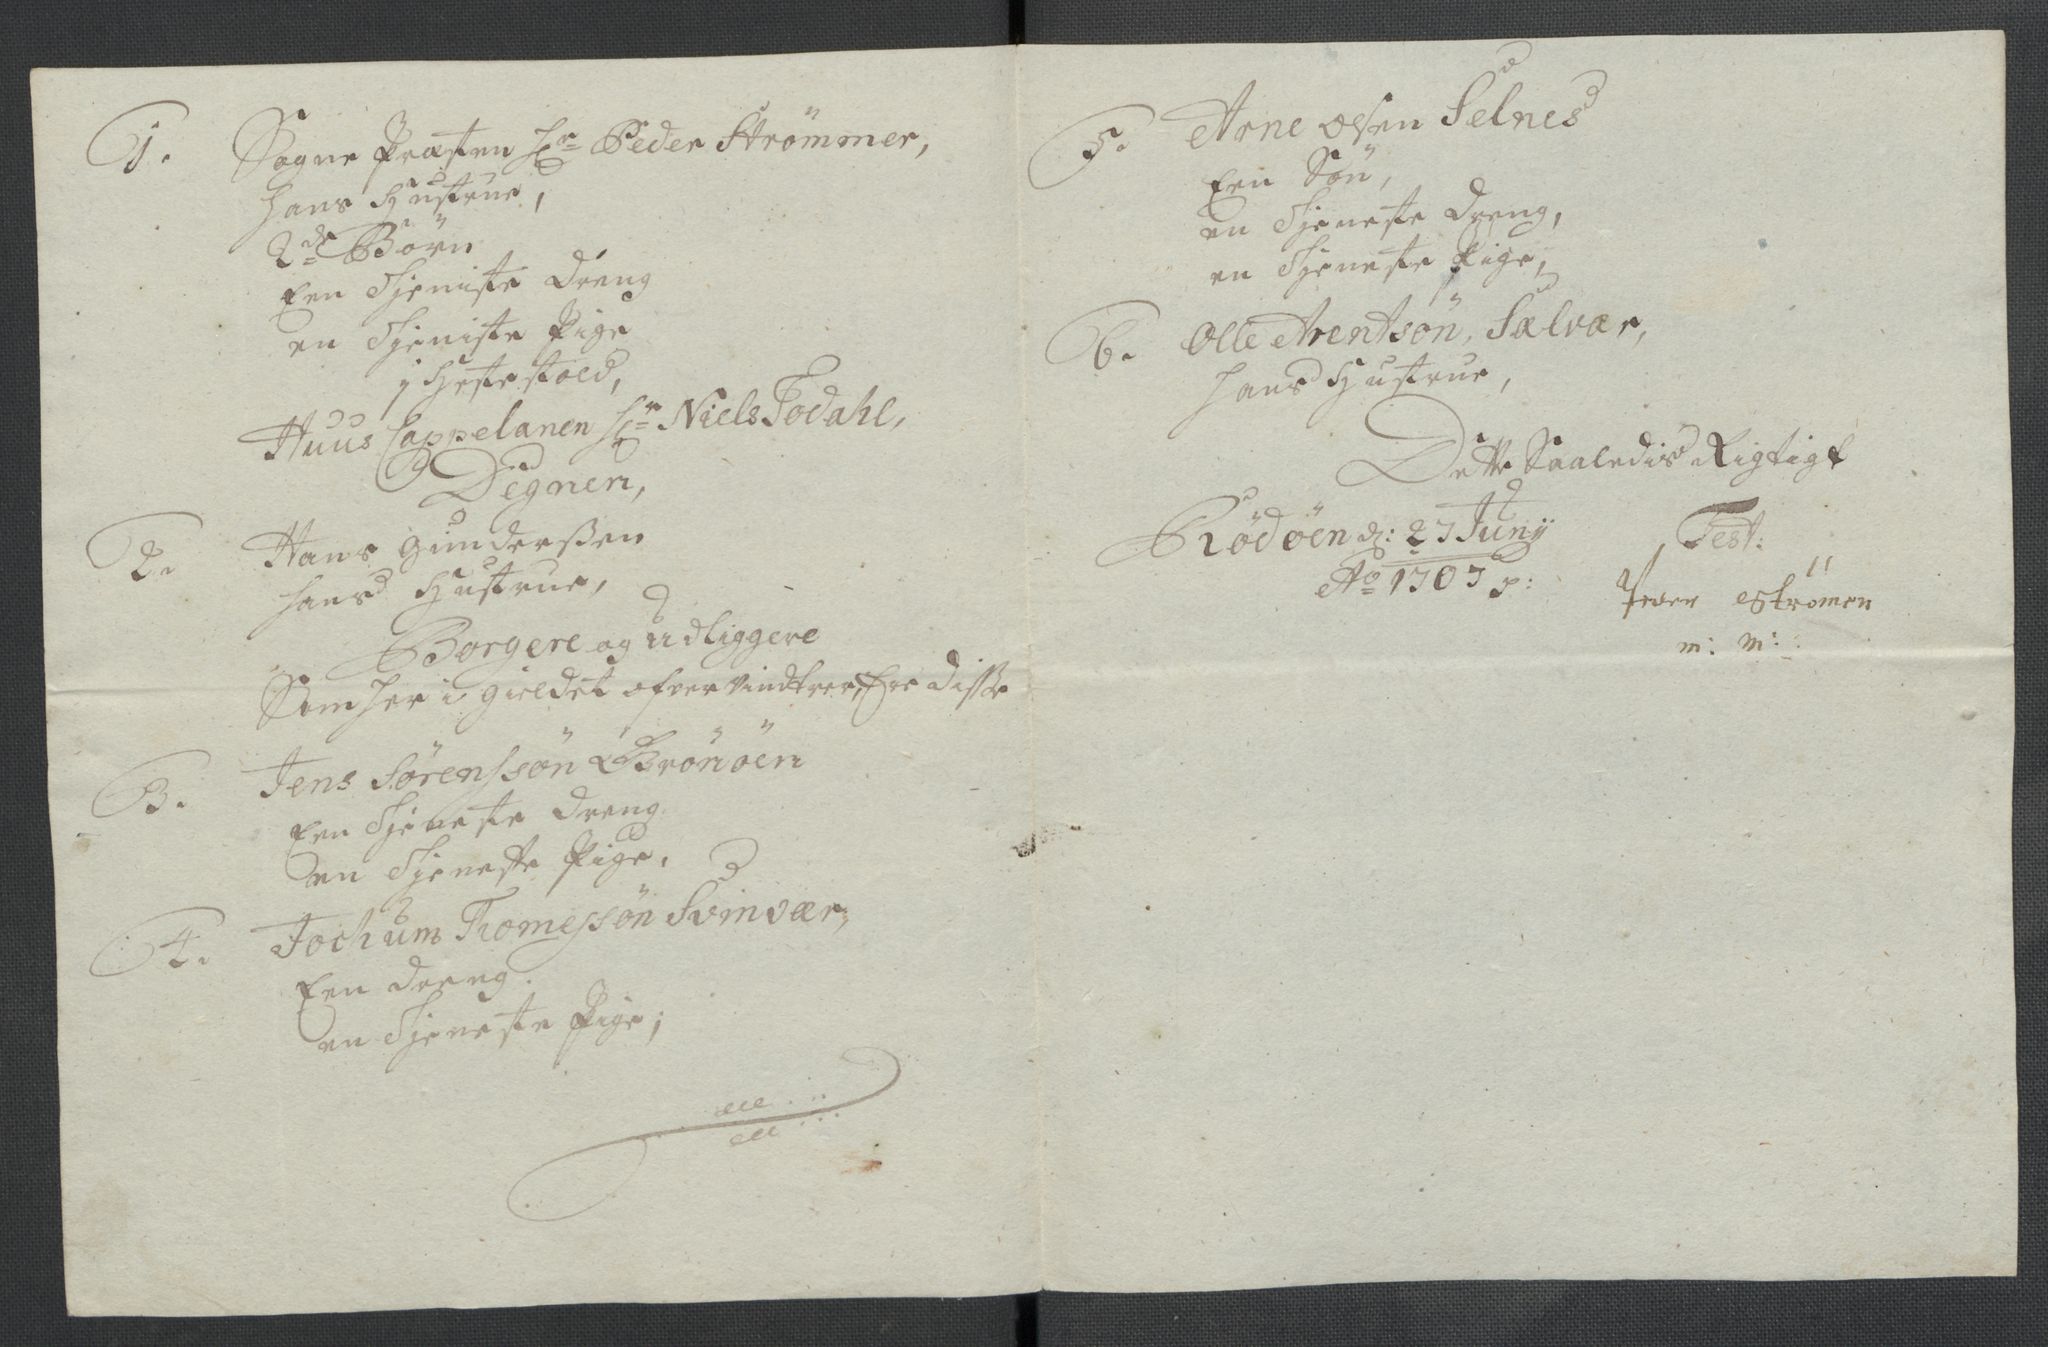 1. Sogne Præsten Hr Peder Strømmer,
hans Hustrue,
2de Børn
Een Tjeniste Dreng
en Tjeniste Pige
j Hestestold,
Huus Cappelanen Hr Niels Todahl,
Degnen,
2. Hans Gunderßen
hans Hustrue,
Borgere og udliggere
Som her i Gieldet ofver vindtrer, Ere disse
3. Jens Sørenssøn Brönöen
Een Tjeneste Dreng
en Tjeneste Pige,
4. Jochum Tomessøn Svinvær,
Een Dreng.
en Tjeneste Pige;
5. Arne Olsen Selnes
Een Søn,
en Tjeneste Dreng,
en Tjeneste Pige,
6. Olle Arentsøn, Sælvær,
hans Hustrue,
Dette Saaledis Rigtigt
Rødøen d: 27 Junij Test:
Ao 1707 p:
Peder Strømer
m: m: